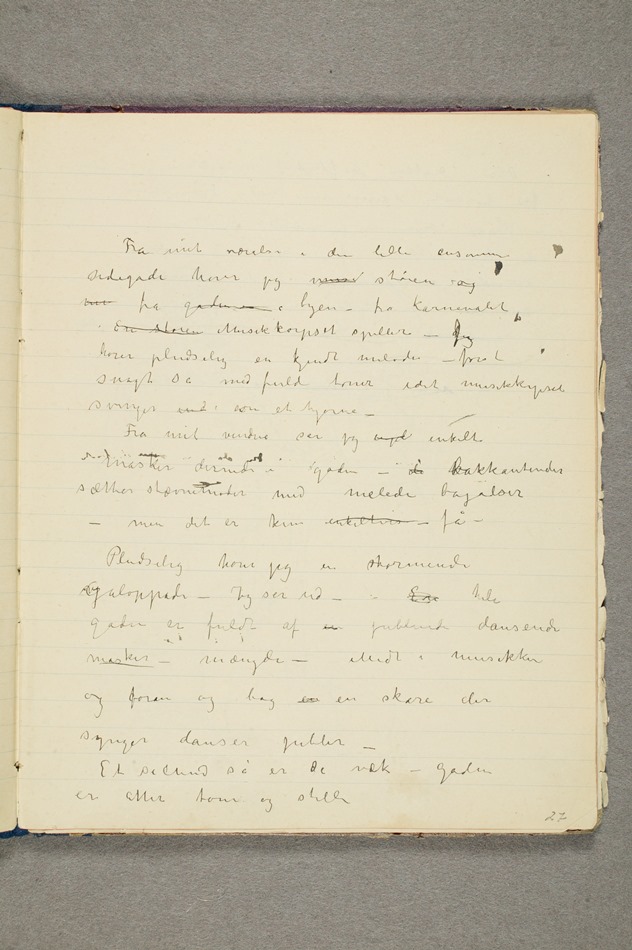 Fra mit værelse i den lille ensomme
sidegade hører jeg støien og
fra gaderne i byen – fra karnevalet
en støren Musikkorpset spiller – Jeg
hører pludselig en kjendt melodi – først
svagt så med fuld toner idet musikkorpset
svinger om et hjørne –
Fra mit vindue ser jeg enkelte
Masker i gaden – de
sætter stævnemøder med
– men det er kun enkeltvis – få –
Pludselig hører jeg en stormende
galoppade – Jeg ser ud – hele
gaden er fuldt af en jublende dansende
masker – mængde – Midt i musikken
og foran og bag en en skare der
synger danser jubler –
Et sekund så er de væk – gaden
er atter tom og stille
27